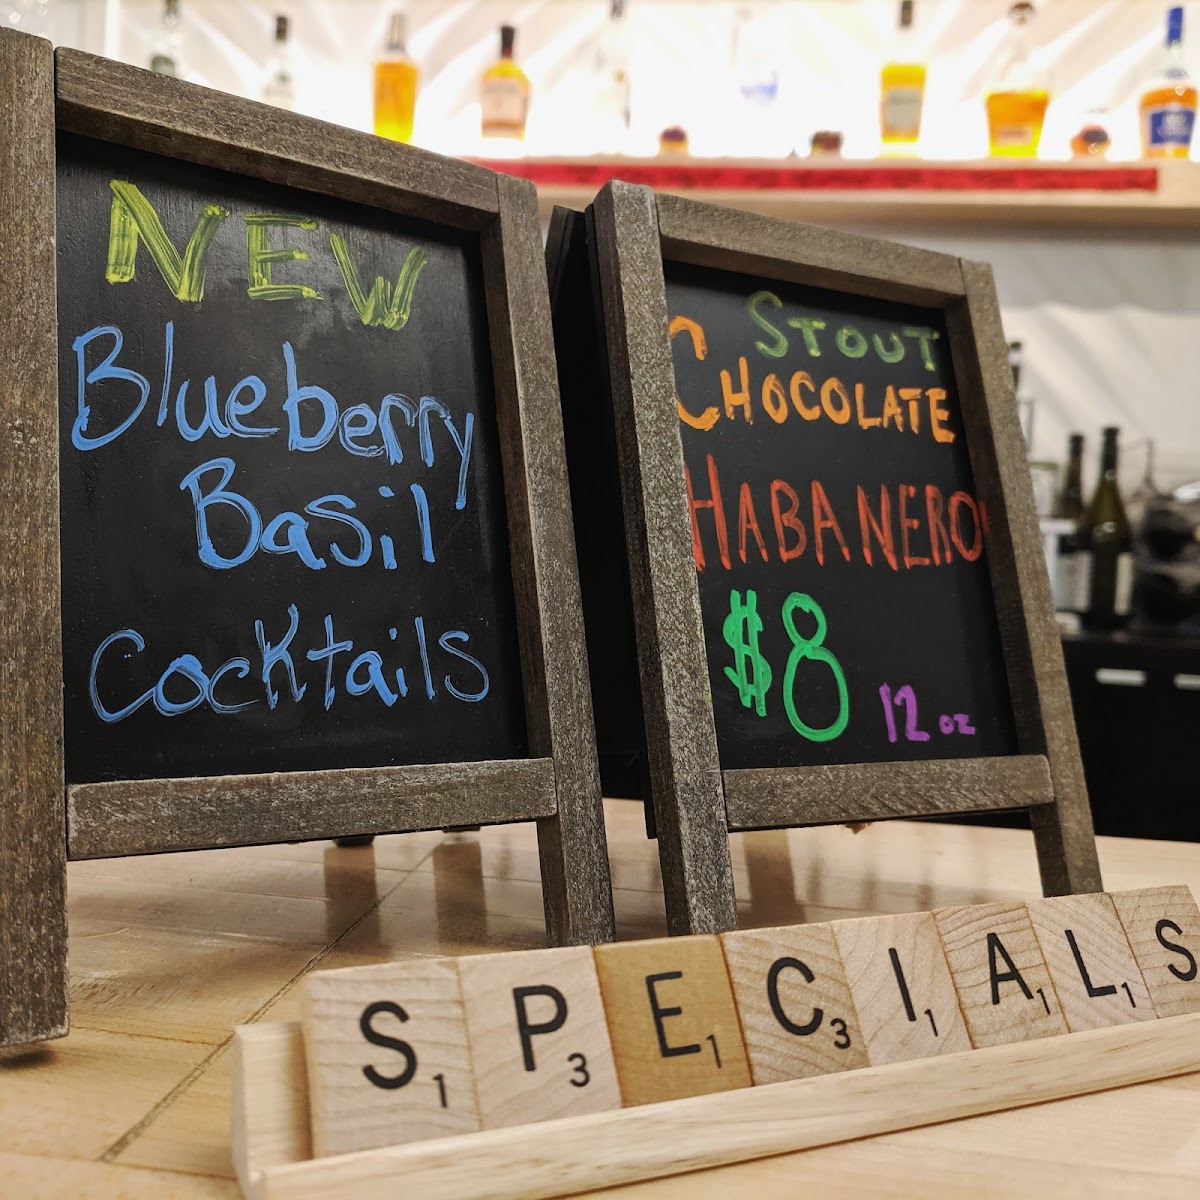 NEW
Blueberry
Basil
Cocktails
STOUT
CHOCOLATE
HABANERO
$8 12 oz
S1 P3 E1 C3 I1 A1 L1 S